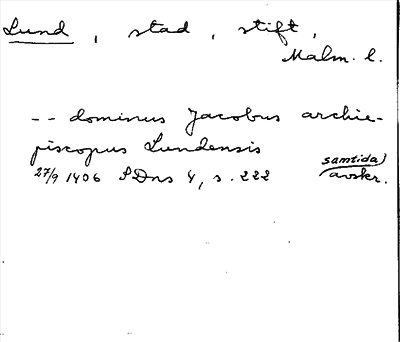 Lund, stad, stift,
Malm. l.
-- dominus Jacobus archie-
piscopus Lundensis
27/9 1406 SDns 4, s. 222 samtida
avskr.